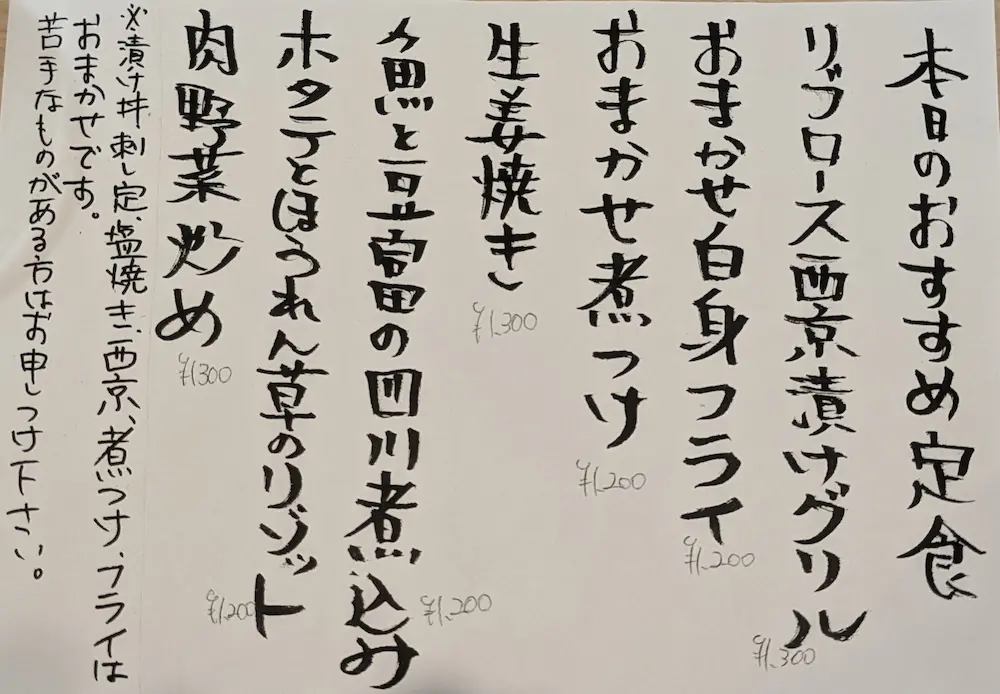 本日のおすすめ定食
リブロース西京漬けグリル
¥1,300
おまかせ白身フライ
¥1,200
おまかせ煮つけ
¥1,200
生姜焼き
¥1,300
魚と豆富の四川煮込み
¥1,200
ホタテとほうれん草のリゾット
¥1,200
肉野菜炒め
¥1300
※漬け丼刺し定、塩焼き、西京、煮つけ、フライは
おまかせです。
苦手なものがある方はお申しつけ下さい。